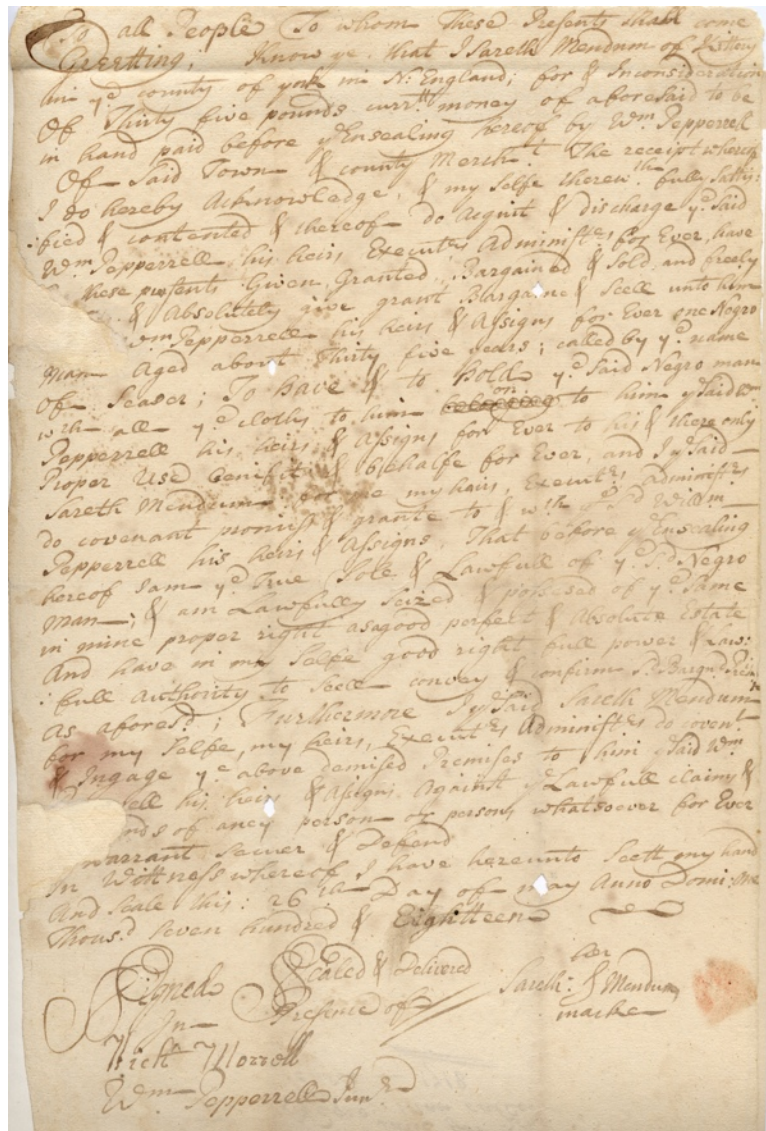 To all People To whom These Presents shall come
Greetting, Know ye that I Sareth Mendum of Kittery
in ye county of york in N: England; for & Inconsideration
Of Thirty five pounds currtt money of aforesaid to be
in hand paid before ye Ensealing hereof by Wm Pepperrell
Of Said Town & county Mercht. The receipt whereof
I do hereby Acknowledge, & my selfe therewth fully sattis:
:fied & contented & thereof do Acquit & discharge ye Said
Wm Pepperrell his heirs Executrs Administrs for Ever, have
these presents Given, Granted, Bargained & Sold, and freely
& Absolutely give grant Bargaine & Sell unto him
Wm Pepperrell his heirs & Assigns for Ever one Negro
Man Aged about Thirty five years; called by ye name
Of Seaser; To have & to hold ye Said Negro man
wth all ye cloths to him on to him ye Said Wm
Pepperrell his heirs & Assigns for Ever to his & there only
Proper Use benifit & behalfe for Ever, and I ye Said
Sareth Mendum for me my hairs, Executrs administrs
do covenant promiss & grante to & wth ye Sd Willm
Pepperrell his heirs & Assigns, That before ye Ensealing
hereof I am ye True Sole & Lawfull of ye Sd Negro
man; & am Lawfully Seized & possesed of ye Same
in mine proper right as agood perfect & Absolute Estate
And have in my Selfe good right full power & Law:
:full Authority to Sell convey & confirm Sd Bargnd
As aforesd; Furthermore I ye Said Sareth Mendum
for my Selfe, my heirs, Executrs Administrs do covent
& Ingage ye above demised Premises to him ye Said Wm
ell his heirs & Assigns Against ye Lawfull claims &
nds of aney person or persons whatsoever for Ever
warrant Secuer & Defend
In Wittness whereof I have hereunto Sett my hand
And Seale this: 26th Day of may Anno Domi: one
Thousd Seven hundred & Eighteen
Signed Sealed & Delivered
In Presence of
her
Sareth Mendum
marke
Richd Morrell
Wm Pepperrell Junr